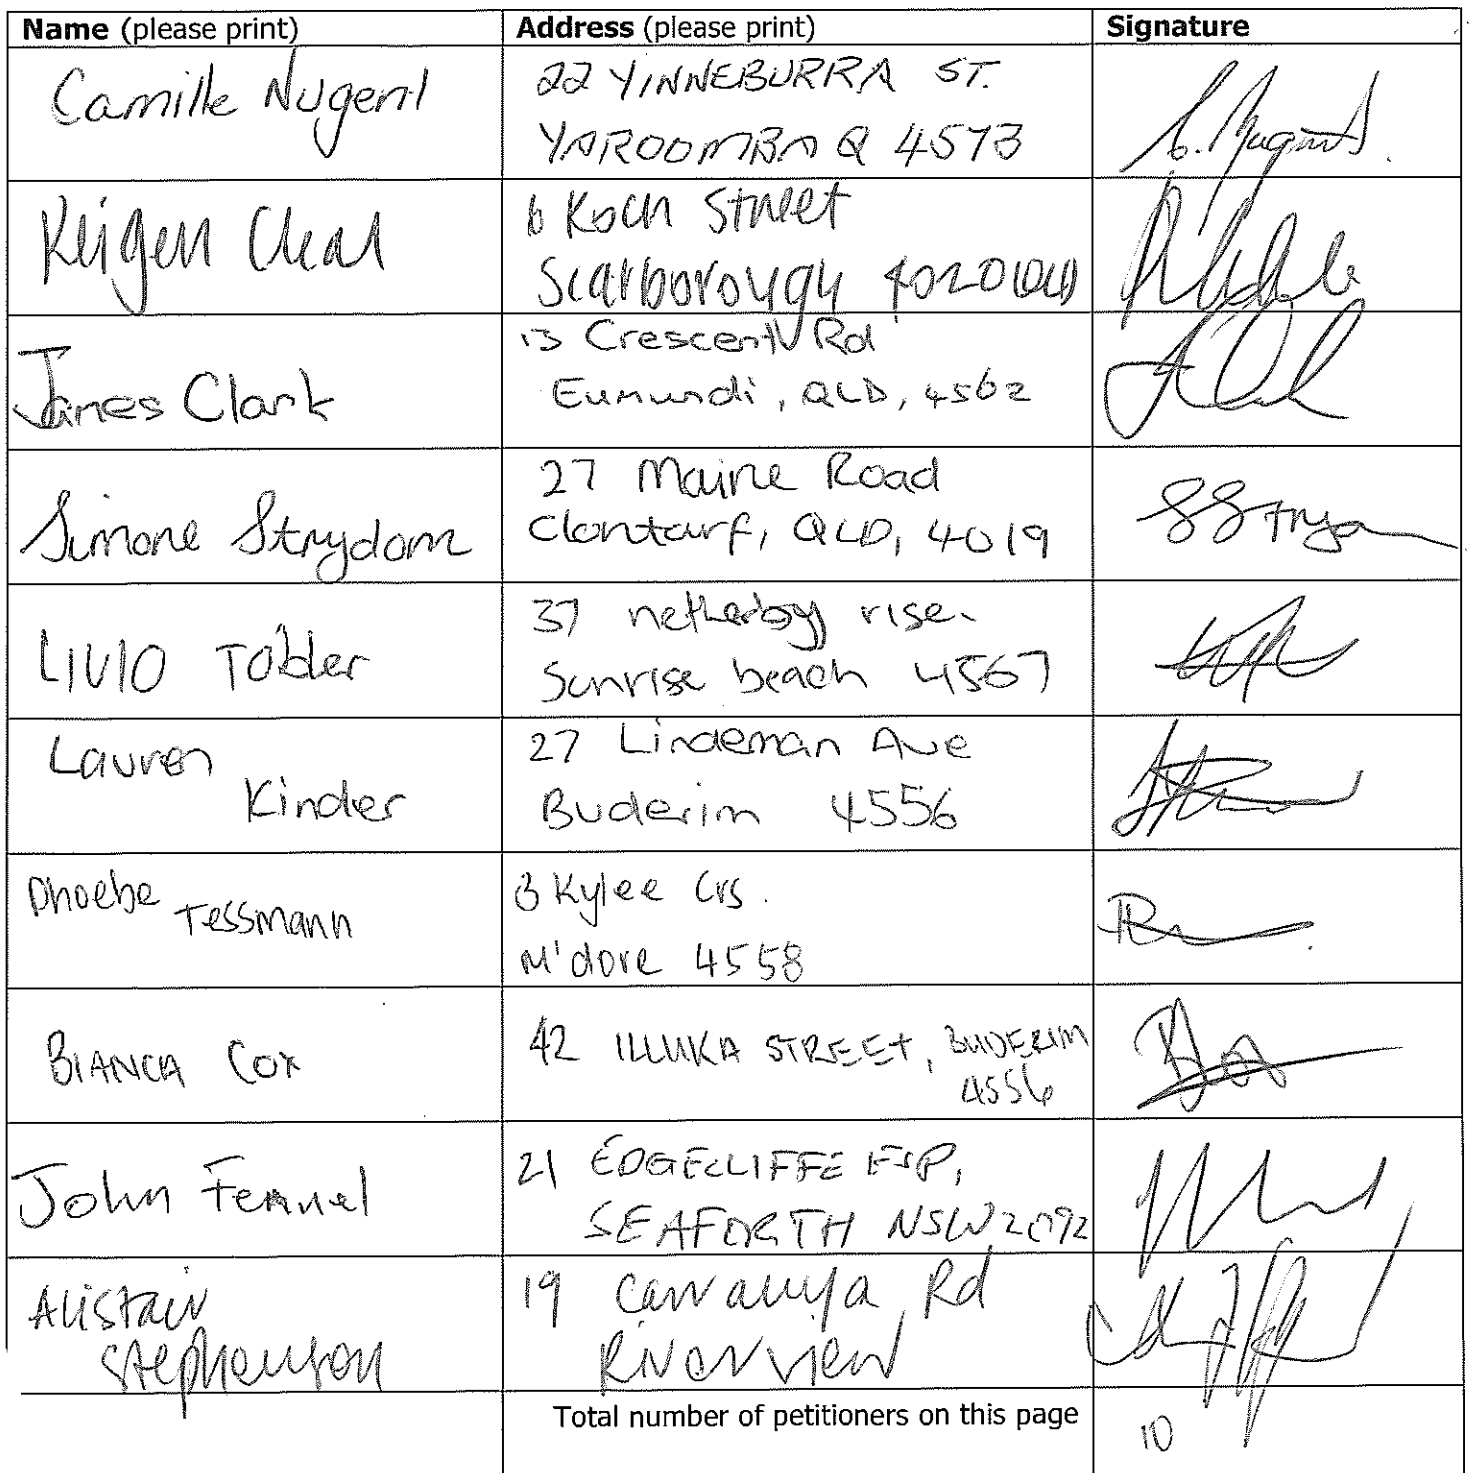 Name (please print) Address (please print) Signature
Camille Nugent
22 YINNEBURRA ST.
YAROOMBA Q 4573
C. Nugent
Keigen Cheal
6 Koch Street
Scarborough 4020 QLD
James Clark
13 Crescent Rd
Eumundi, QLD, 4562
Simone Strydom
27 Maine Road
Clontarf, QLD, 4019
LIVIO Tobler
37 netherby rise.
Sunrise beach 4567
Lauren
Kinder
27 Lindeman Ave
Buderim 4556
Phoebe
Tessmann
3 Kylee Crs.
M'dore 4558
BIANCA COX
42 ILLUKA STREET, BUDERIM
4556
John Fennel
21 EDGECLIFFE ESP,
SEAFORTH NSW 2092
Alistair
Stephenson
19 Rd
Riverview
Total number of petitioners on this page
10